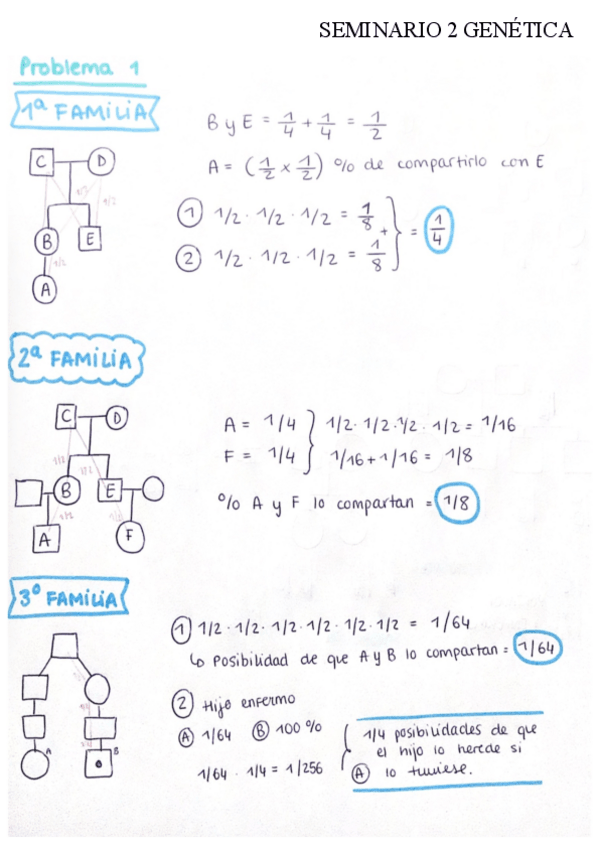 SEMINARIO 2 GENÉTICA
Problema 1
1ª FAMILIA
B y E = 1/4 + 1/4 = 1/2
A = (1/2 x 1/2) % de compartirlo con E
① 1/2 · 1/2 · 1/2 = 1/8
+ } = 1/4
② 1/2 · 1/2 · 1/2 = 1/8
C D
1/2 1/2
B E
1/2
A
2ª FAMILIA
C D
1/2 1/2
B E
1/2 1/2
A F
A = 1/4 } 1/2 · 1/2 · 1/2 · 1/2 = 1/16
F = 1/4 } 1/16 + 1/16 = 1/8
% A y F lo compartan = 1/8
3º FAMILIA
A B
① 1/2 · 1/2 · 1/2 · 1/2 · 1/2 · 1/2 = 1/64
↳ Posibilidad de que A y B lo compartan = 1/64
② Hijo enfermo
Ⓐ 1/64 Ⓑ 100 %
1/64 · 1/4 = 1/256
{ 1/4 posibilidades de que
el hijo lo herede si
Ⓐ lo tuviese.